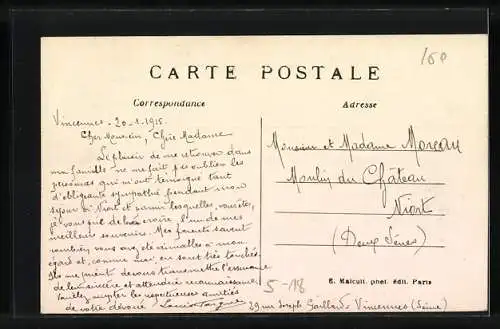 150
CARTE POSTALE
Correspondance
Adresse
Vincennes - 20-1-1915.
Cher Monsieur, Chère Madame
Le plaisir de me retrouver dans
ma famille ne me fait pas oublier les
personnes qui m'ont témoigné tant
d'obligeante sympathie pendant mon
séjour à Niort et parmi lesquelles, vous êtes,
je vous prie de le croire l'un de mes
meilleurs souvenirs. Mes parents savent
combien vous avez été aimables à mon
égard et, comme moi, en sont très touchés.
Ils me prient de vous transmettre l'assurance
de leur sincère et attendrie reconnaissance.
Veuillez accepter les respectueuses amitiés
de votre dévoué Louis
29 rue Joseph Gaillard - Vincennes (Seine)
Monsieur et Madame Moreau
Moulin du Château
Niort
(Deux Sèvres)
E. Malcuit. phot. édit. Paris
5-18